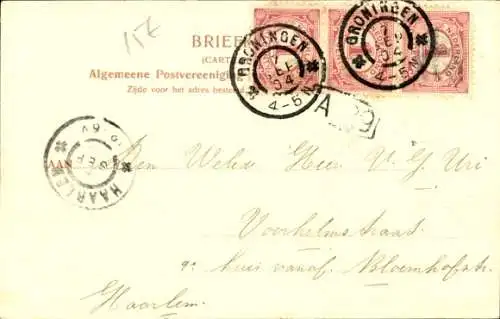 15k
BRIEF
(CART
Algemeene Postvereenig
Zijde voor het adres beste
GRONINGEN
SEP
04
4-5N
GRONINGEN
SEP
04
4-5N
A 69
HAARLEM
SEP
AAN Den Weledr Heer V. G. Uri
Voorhelmstraat
9e huis vanaf Bloemhofstr.
Haarlem.